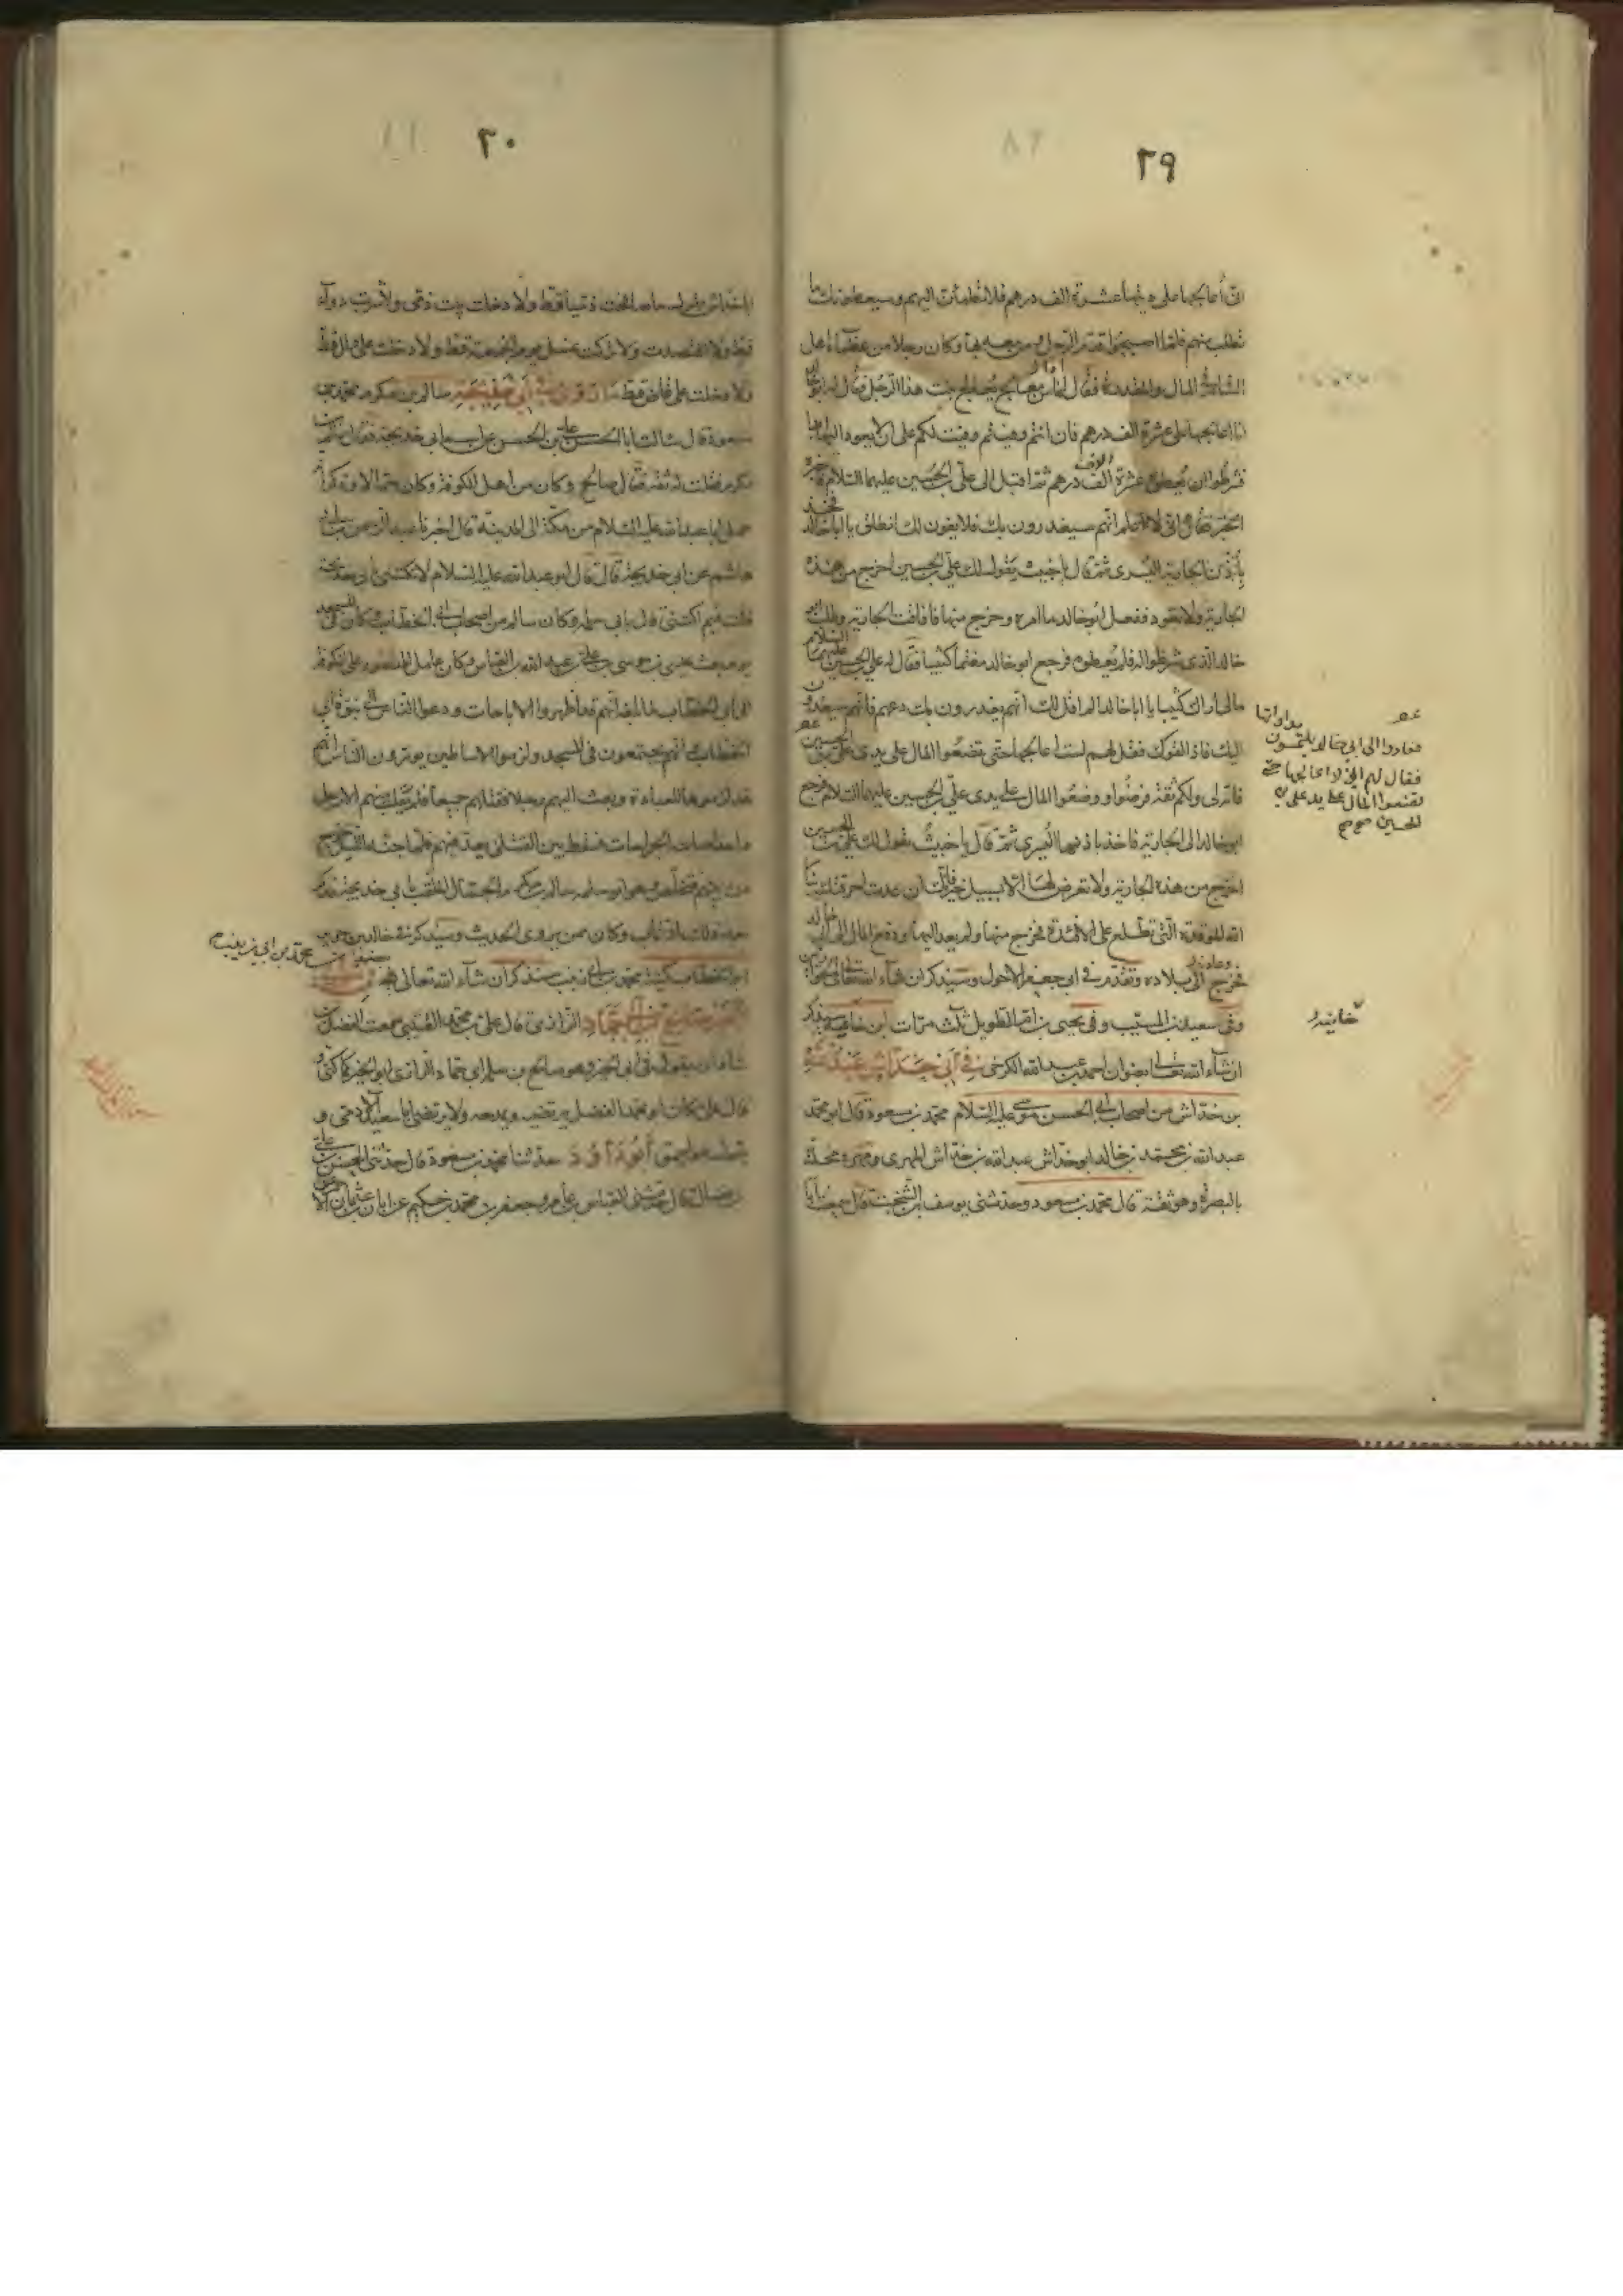 ٢٩
انى أعالجها على ان عشرة الف درهم فلا تطمئن اليهم وسيعطونك ما
تطلب منهم فلما اصبحوا قدم الرجل ومن معه بها وكان رجلا من عظماء اهل
الشام فى المال والمقدرة فقال اما من معالج يعالج بنت هذا الرجل فقال له ابو خالد
انا اعالجها على عشرة الف درهم فان انتم وفيتم وفيت لكم على ان لا يعود اليها ابدا
فشرطوا ان يعطوه عشرة الف درهم ثم اقبل الى على بن الحسين عليهما السلام فاخبره
الخبر فقال انى لاعلم انهم سيغدرون بك فلا يفون لك انطلق يا ابا خالد فخذ
بأذن الجارية اليسرى ثم قال يا خبيث يقول لك على بن الحسين اخرج من هذه
الجارية ولا تعود ففعل ابو خالد ما امره وخرج منها فافاقت الجارية وطلب ابو
خالد الذى شرطوا له فلم يعطوه فرجع ابو خالد مغتما كئيبا فقال له على بن الحسين عليهما السلام
مالى اراك كئيبا يا ابا خالد الم اقل لك انهم يغدرون بك دعهم فانهم سيعودون
اليك فاذا لقوك فقل لهم لست اعالجها حتى تضعوا المال على يدى على بن الحسين
فانه لى ولكم ثقة فرضوا ووضعوا المال على يدى على بن الحسين عليهما السلام فرجع
ابو خالد الى الجارية فاخذ باذنها اليسرى ثم قال يا خبيث يقول لك على بن الحسين
اخرج من هذه الجارية ولا تعرض لها الا بسبيل خير فانك ان عدت احرقتك بنار
الله الموقدة التى تطلع على الافئدة فخرج منها ولم يعد اليها ودفع المال الى ابى خالد
فخرج الى بلاده وتقدم فى ابى جعفر الاحول وسيذكر ان شاء الله تعالى
وفى سعيد بن المسيب وفى يحيى بن ام الطويل ثلث مرات
ان شاء الله تعالى بعنوان احمد بن عبد الله الكرخى فى أبى خداش عبد الله
بن خداش من اصحاب ابى الحسن موسى عليه السلام محمد بن مسعود قال ابو محمد
عبد الله بن محمد بن خالد ابو خداش عبد الله بن خداش المهرى ومهره محلة
بالبصرة وهو ثقة قال محمد بن مسعود وحدثنى يوسف بن السخت قال سمعت ابا
فعادوا الى ابى خالد يلتمسون مداواتها
فقال لهم انى لا اعالجها حتى
تضعوا المال على يد على بن
الحسين
٣٠
خداش يقول ما صافحت ذميا قط ولا دخلت بيت ذمى ولا شربت دواء
قط ولا افتصدت ولا تركت غسل يوم الجمعة قط ولا دخلت على وال قط
ولا دخلت على قاض قط ما روى فى أبى خديجة سالم بن مكرم محمد بن
مسعود قال سالت ابا الحسن على بن الحسن عن اسم ابى خديجة فقال سالم بن
مكرم فقلت له ثقة فقال صالح وكان من اهل الكوفة وكان جمالا وذكر انه
حمل ابا عبد الله عليه السلام من مكة الى المدينة قال اخبرنا عبد الرحمن بن ابى
هاشم عن ابى خديجة قال قال ابو عبد الله عليه السلام لا تكتنى بابى خديجة
قلت فبم اكتنى قال بابى سلمة وكان سالم من اصحاب ابى الخطاب وكان فى المسجد
يوم بعث عيسى بن موسى بن على بن عبد الله بن العباس وكان عامل المنصور على الكوفة
الى ابى الخطاب لما بلغه انهم قد اظهروا الاباحات ودعوا الناس الى نبوة ابى
الخطاب انهم يجتمعون فى المسجد ولزموا الاساطين يورون الناس انهم
قد لزموها للعبادة وبعث اليهم رجلا فقتلهم جميعا فلم يفلت منهم الا رجل
واحد اصابته جراحات فسقط بين القتلى يعد فيهم فلما جنه الليل خرج
من بينهم فتخلص وهو ابو سلمة سالم بن مكرم الجمال الملقب بابى خديجة فذكر
بعد ذلك انه تاب وكان ممن يروى الحديث وسيذكر فى خالد بن
ابو الخطاب محمد بن ابى زينب سيذكر ان شاء الله تعالى
ابو الخير صالح بن أبى حماد الرازى قال على بن محمد القتيبى سمعت الفضل بن
شاذان يقول فى ابى الخير وهو صالح بن سلمة ابى حماد الرازى ابو الخير كما كنى
قال على كان ابو محمد الفضل يرتضيه ويمدحه ولا يرتضى ابا سعيد الادمى و
يقول هو احمق أبو داود حدثنا محمد بن مسعود قال حدثنى على بن الحسن بن
فضال قال حدثنى العباس بن عامر وجعفر بن محمد بن حكيم عن ابان بن عثمان
محمد بن ابى زينب